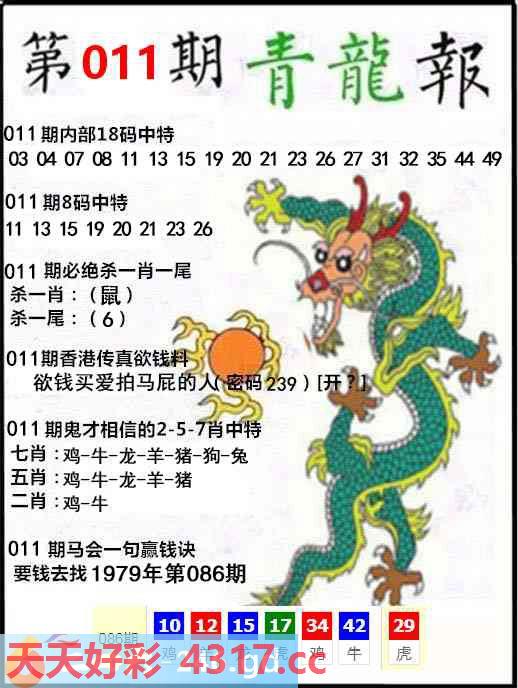 第011期青龍報
011期内部18码中特
03 04 07 08 11 13 15 19 20 21 23 26 27 31 32 35 44 49
011期8码中特
11 13 15 19 20 21 23 26
011 期必绝杀一肖一尾
杀一肖：（鼠）
杀一尾：（6）
011期香港传真欲钱料
欲钱买爱拍马屁的人（密码239）[开？]
011期鬼才相信的2-5-7肖中特
七肖：鸡-牛-龙-羊-猪-狗-兔
五肖：鸡-牛-龙-羊-猪
二肖：鸡-牛
011 期马会一句赢钱诀
要钱去找1979年第086期
10 12 15 17 34 42 29
086期 鸡 虎 鸡 牛 虎
天天好彩 4317.cc